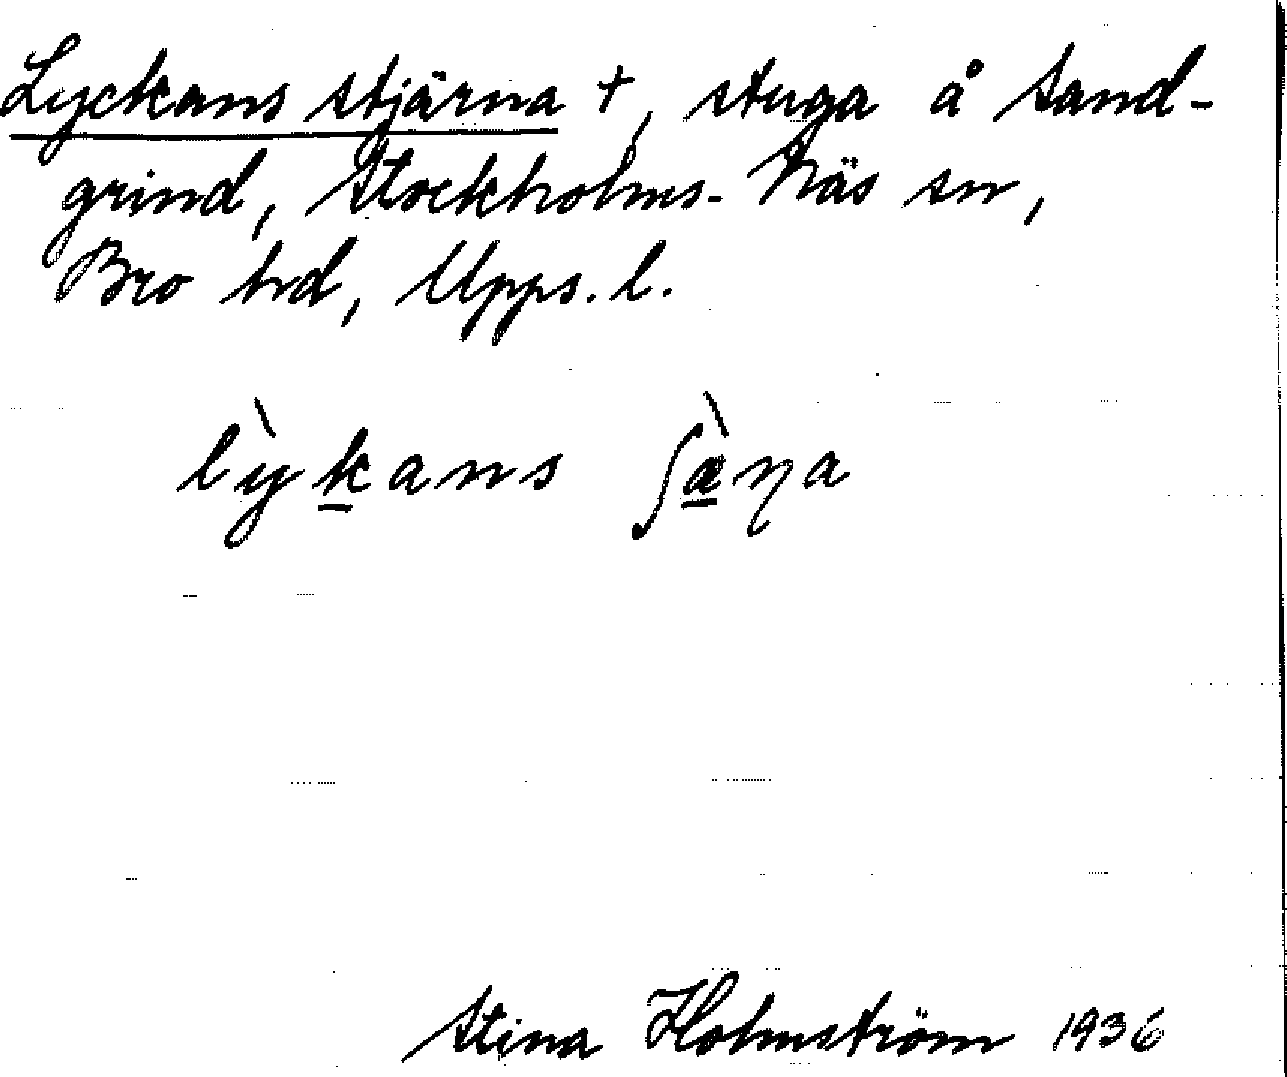 Lyckans stjärna +, stuga å Sand-
grind, Stockholms-Näs sn,
Bro hd, Upps. l.
lỳk̲ans ʃæ̲̀ɳa
Stina Holmström 1936